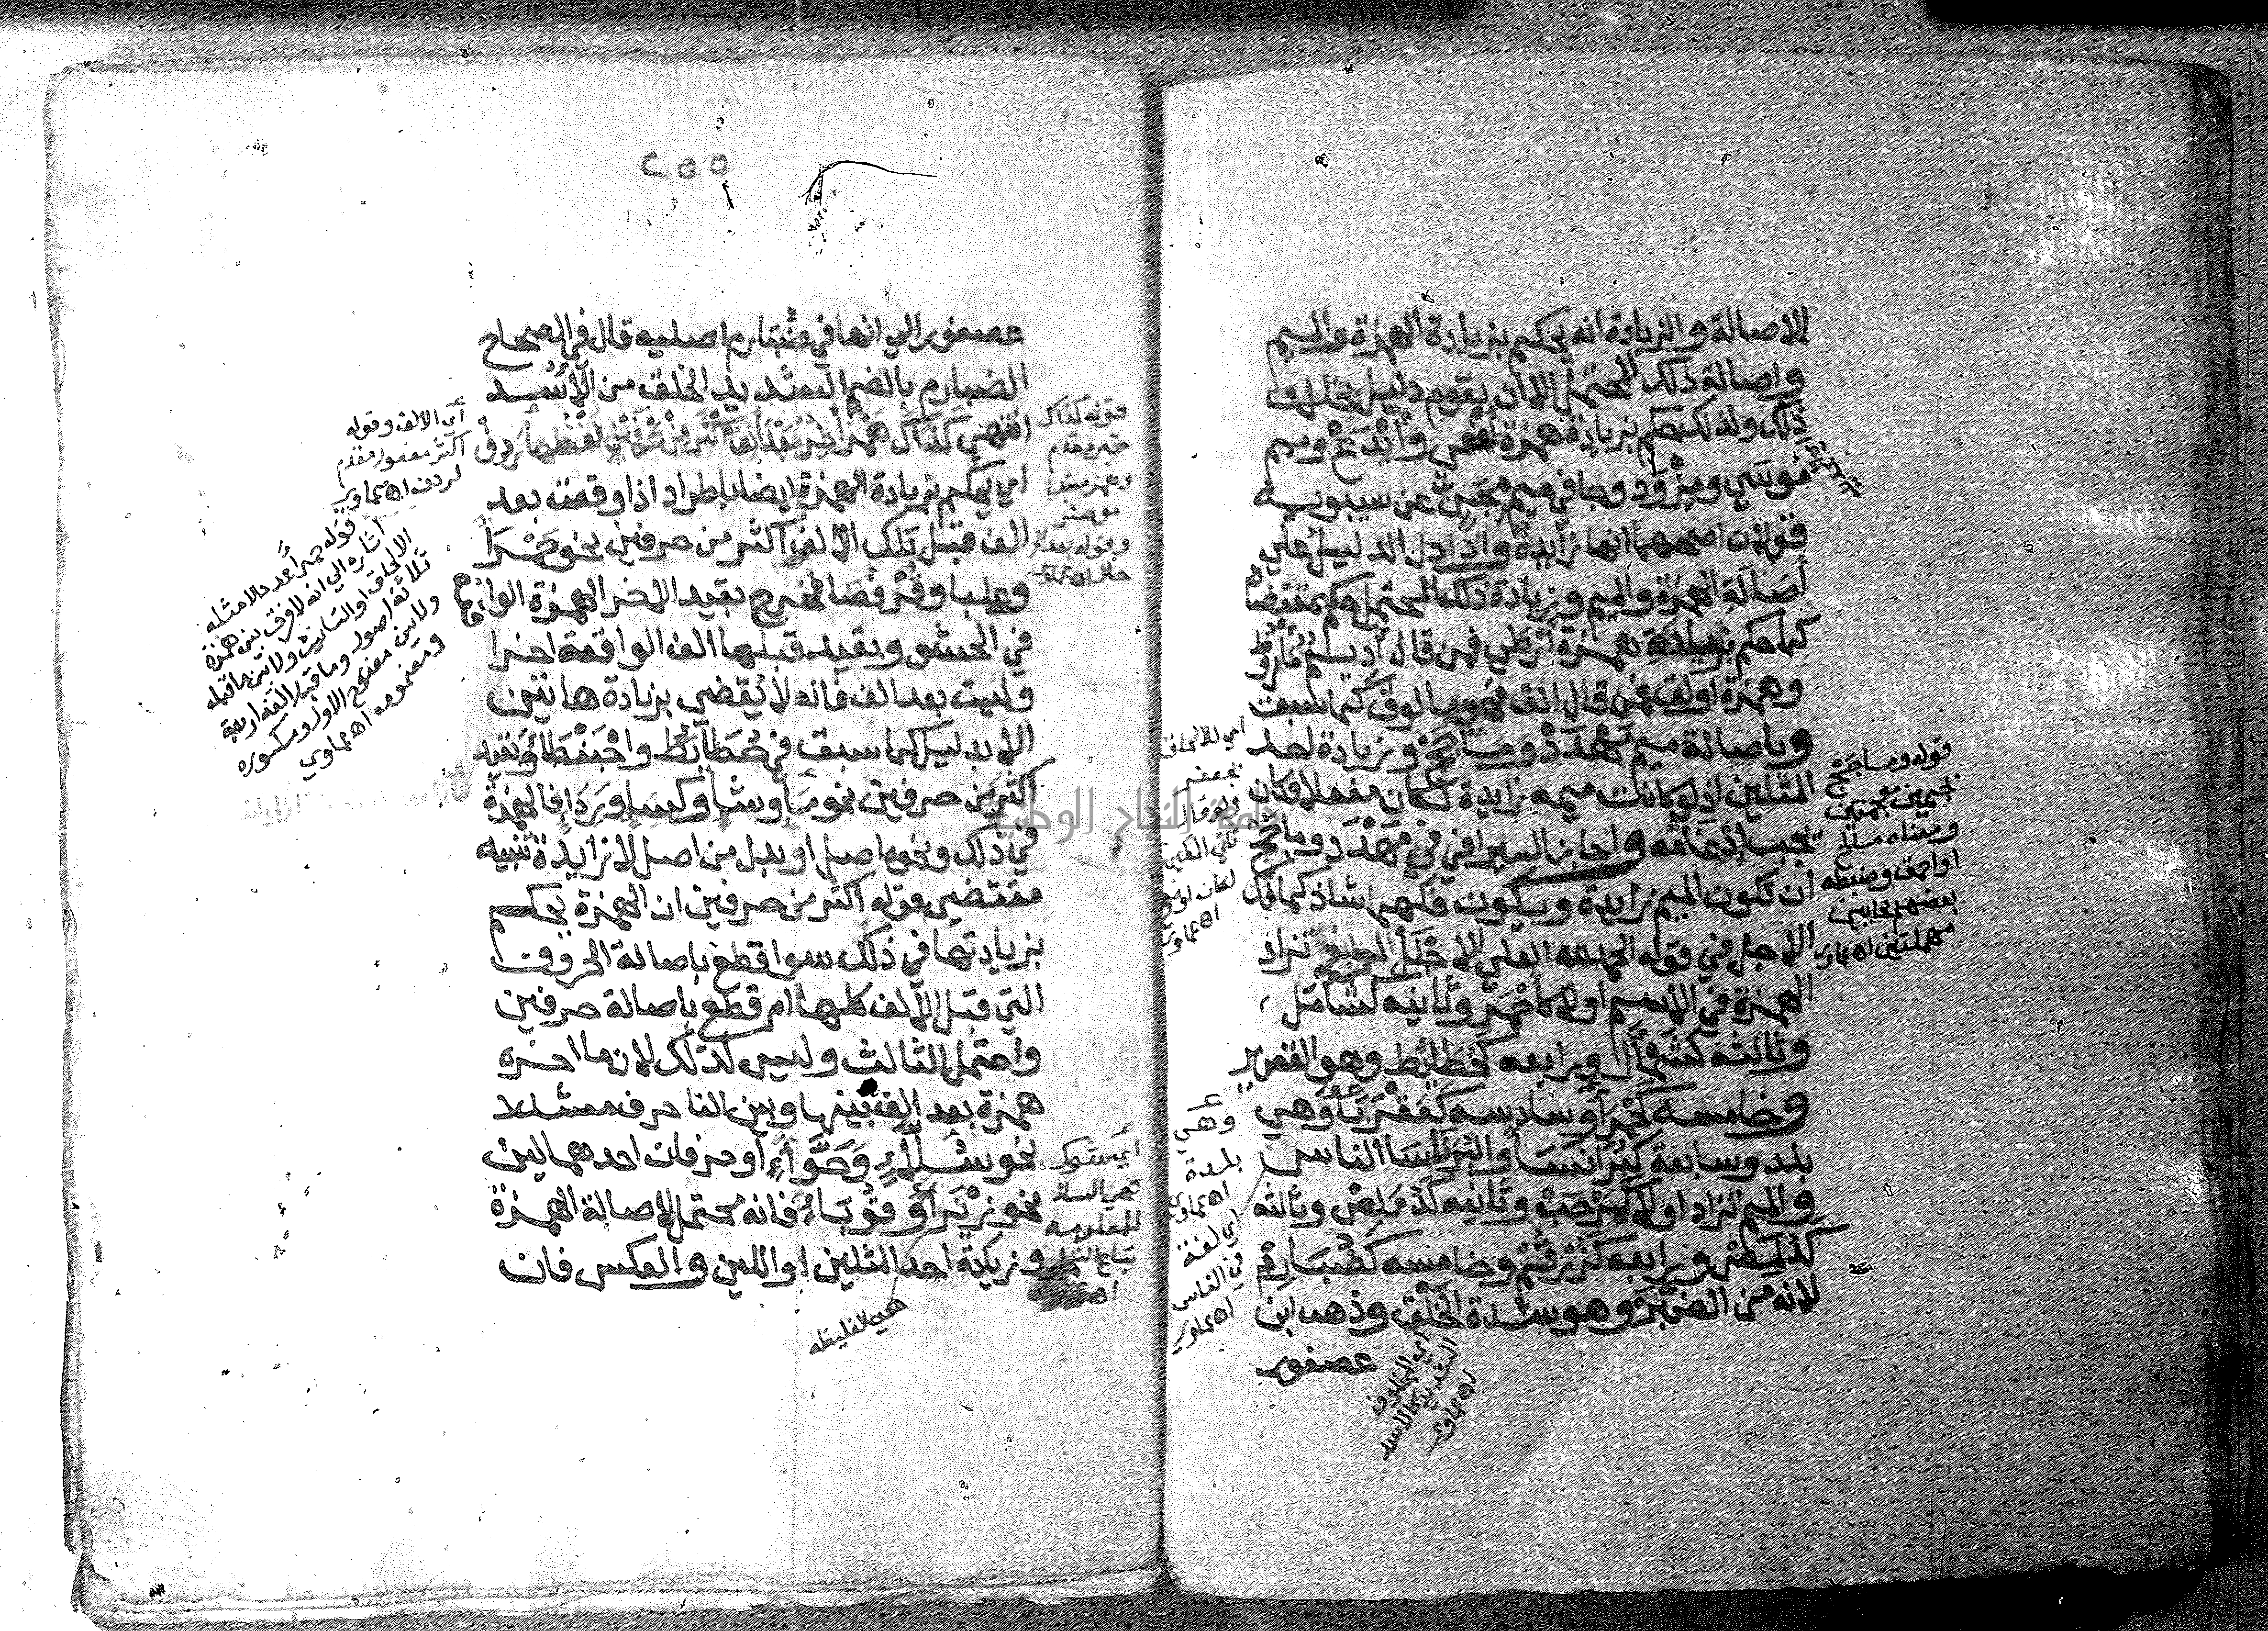 الاصالة والزيادة انه يحكم بزيادة الهمزة والميم
واصالة ذلك المحتمل الا ان يقوم دليل بخلاف
ذلك ولذلك حكم بزيادة همزة أفعى وأيدع وميم
موسى ومزود وجا في ميم مجن عن سيبويه
قولان اصحهما انها زايدة واذا دل الدليل على
أصالة الهمزة والميم وزيادة ذلك المحتمل حكم بمقتضاه
كما حكم بزيادة همزة أرطى فمن قال أديم مأروط
وهمزة اولق فمن قال الق فهو مالوق كما سبق
وباصالة ميم مهدد ومأجج وزيادة احد
المثلين اذ لو كانت ميمه زايدة لكان مفعلا وكان
يجب إدغامه واجاز السيرافي في مهدد وماجج
ان تكون الميم زايدة ويكون فكهما شاذ كما فك
الاجل في قوله الحمد لله العلي الاجلل الرابع تزاد
الهمزة في الاسم اولا كأحمر وثانيه كشأمل
وثالثه كشمأل ورابعه كحطائط وهو القصير
وخامسه كحمرأ وسادسه كعقربا وهي
بلد وسابعة كبرانسا والبرناسا الناس
والميم تزاد اوله كمرحب وثانيه كدملص وثالثه
كدلمص ورابعه كزرقم وخامسه كضبارم
لانه من الضبر وهو شدة الخلق وذهب ابن
عصفور
قوله ومساجج
بجيمين
ومعناه مسالح
او احمق وضبطه
بعضهم بحايين
مهملتين اه عماوي
اي للالحاق
وهي
بلدة
اه عماوي
اي لغة
في الناس
اه عماوي
اي المخلوق
الشديد كالاسد
اه عماوي
٢٥٥
عصفور الى انها في ضبارم اصليه قال في الصحاح
الضبارم بالضم الشديد الخلق من الأسد
انتهى كذاك همز أخر بعد ألف أكثر من حرفين لفظها ردف
اي يحكم بزيادة الهمزة ايضا باطراد اذا وقعت بعد
الف قبل تلك الالف اكثر من حرفين نحو حمرأ
وعلبا وقرفصا فخرج بقيد الاخر الهمزة الواقعة
في الحشو وبقيد قبلها الف الواقعة اخرا
وليست بعد الف فانه لا يقضى بزيادة هاتين
الا بدليل كما سبق في حطائط واحبنطأ وبقيد
اكثر من حرفين نحو مأ وشأ وكسا وردا فالهمزة
في ذلك ونحوه اصل او بدل من اصل لا زايدة تنبيه
مقتضى قوله اكثر من حرفين ان الهمزة يحكم
بزيادتها في ذلك سوا قطع باصالة الحروف
التي قبل الالف كلها ام قطع باصالة حرفين
واحتمل الثالث وليس كذلك لان ما اخره
همزة بعد الف بينها وبين الفا حرف مشدد
نحو سلاء وحواء او حرفان احدهما لين
نحو زيزأ وقوباء فانه محتمل لاصالة الهمزة
وزيادة احد المثلين او اللين وبالعكس فان
قوله كذاك
خبر مقدم
وهمز مبتدا
موخر
وقوله بعد الف
حال اه عماوي
أي الالف وقوله
اكثر مفعول مقدم
لردف اه عماوي
قوله حمرأ عدد الامثله
اشاره الى انه لا فرق بين همزة
الالحاق او التانيث ولا بين ما قبله
ثلاثة اصول وما قبل الفه اربعة
ولا بين مفتوح الاول ومكسوره
ومضمومه اه عماوي
أي شوك
هي الغليظه